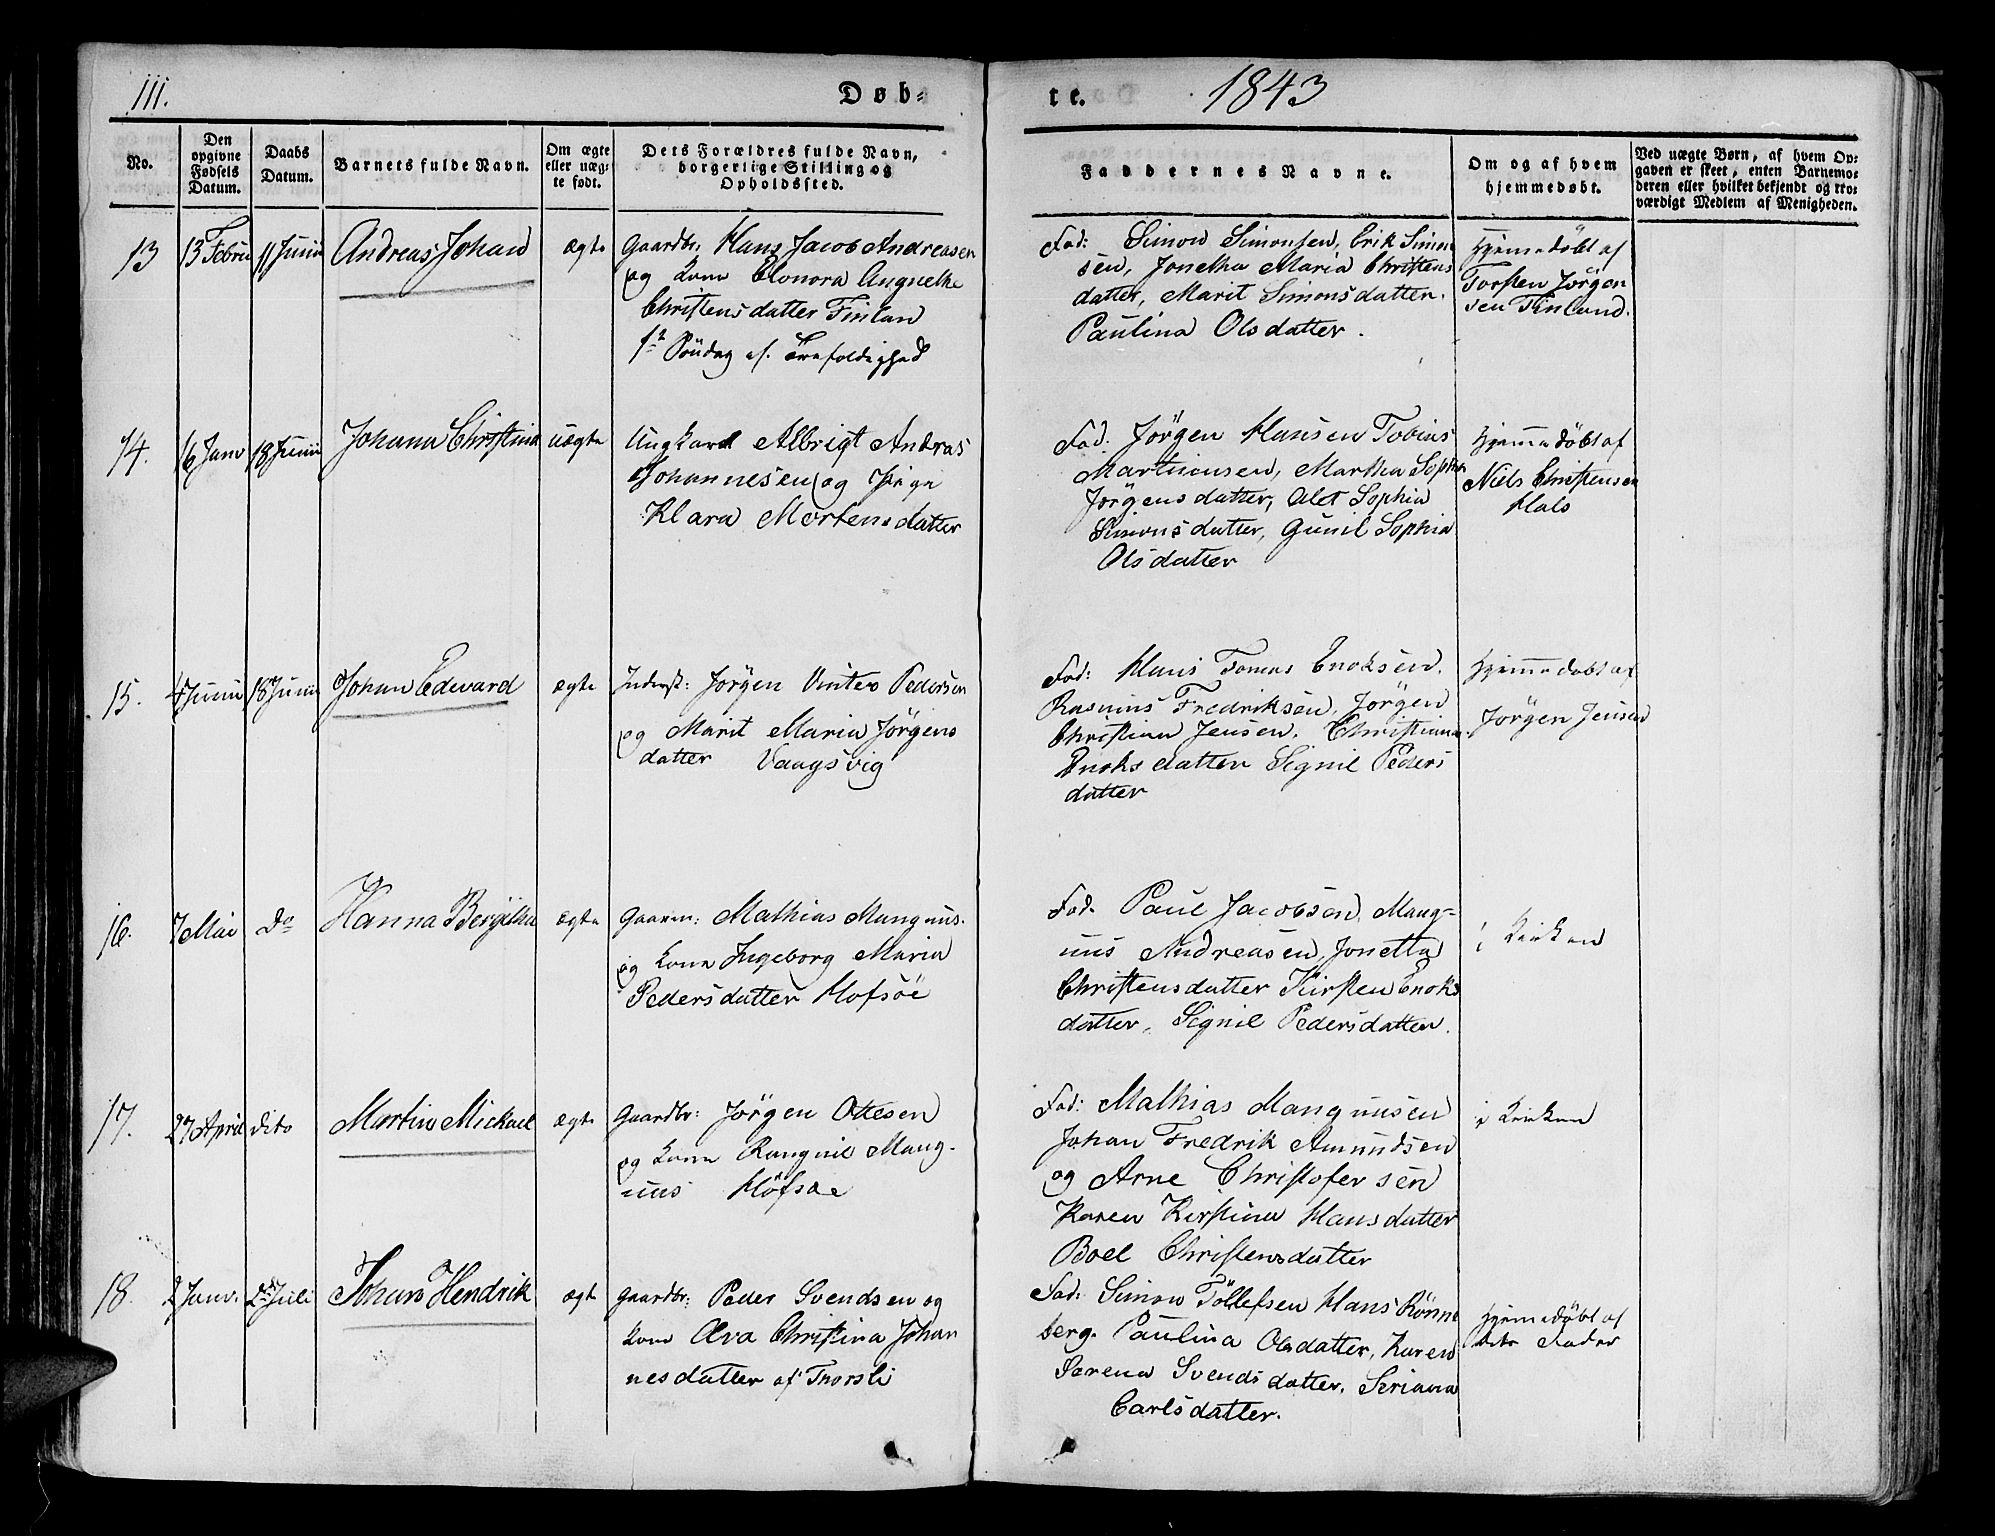 111.
Døb-
te.
1843
No.
Den opgivne Fødsels Datum.
Daabs Datum.
Barnets fulde Navn.
Om ægte eller uæg-te født.
Dets Forældres fulde Navn, borgerlige Stilling og Opholdssted.
Faddernes Navne.
Om og af hvem hjemmedøbt.
Ved uægte Børn, af hvem Op-
gaven er skeet, enten Barnemo-
deren eller hvilket bekjendt og tro-
værdigt Medlem af Menigheden.
13
13 Febru
11 Junii
Andreas Johan
ægte
Gaardbr: Hans Jacob Andreasen
og Kone Elonora Angnethe
Christensdatter Finlan
1te Søndag ef. Trefoldighed
Fad: Simon Simonsen, Erik Simon
sen, Jonetha Maria Christens
datter, Marit Simonsdatter.
Paulina Olsdatter.
Hjemedöbt af
Torsten Jörgen
sen Finland.
14.
16 Janv
18 Junii
Johana Christina
uægte
Ungkarl Albrigt Andras
Johannesen og Pige
Klara Mortensdatter
Fad. Jörgen Hansen Tobias
Marthinusen, Martha Sophia
Jörgensdatter, Olet Sophia
Simonsdatter, Gunil Sophia
Olsdatter
Hjemmedöbt af
Niels Christensen
Hals
15.
4 Junii
18 Junii
Johan Edevard
ægte
Inderst: Jörgen Vinter Pedersen
og Marit Maria Jörgens
datter Vaagsvig
Fad: Hans Tomas Enoksen.
Rasmus Fredriksen, Jörgen
Christian Jensen. Christianna
Enoksdatter Signil Peders
datter
Hjemmedöbt af
Jörgen Jensen
16.
7 Mai
Do
Hanna Bergitha
ægte
Gaarm: Mathias Mangnus.
og Kone Ingeborg Maria
Pedersdatter Hofsöe
Fad. Paul Jacobsen, Mang-
nus Andreasen, Jonetta
Christensdatter Kirsten Enoks
datter, Signil Pedersdatter.
i Kirken
17.
27 April
dito
Martin Mickael
ægte
Gaardbr: Jörgen Ottesen
og Kone Rangnil Mang-
nus Höfsøe
Fad: Mathias Mangnusen
Johan Fredrik Amundsen
og Arne Christofersen
Karen Kirstina Hansdatter
Boel Christensdatter
i Kirken
18.
2 Janv.
2den Juli
Johan Hendrik
ægte
Gaardbr: Peder Svendsen og
Kone Æva Christina Johan
nesdatter af Torsli
Fad: Simon Töllefsen Hans Rönne
berg. Paulina Olsdatter, Karen
Serena Svendsdatter. Seriana
Carlsdatter.
Hjemedöbt af
dets Fader